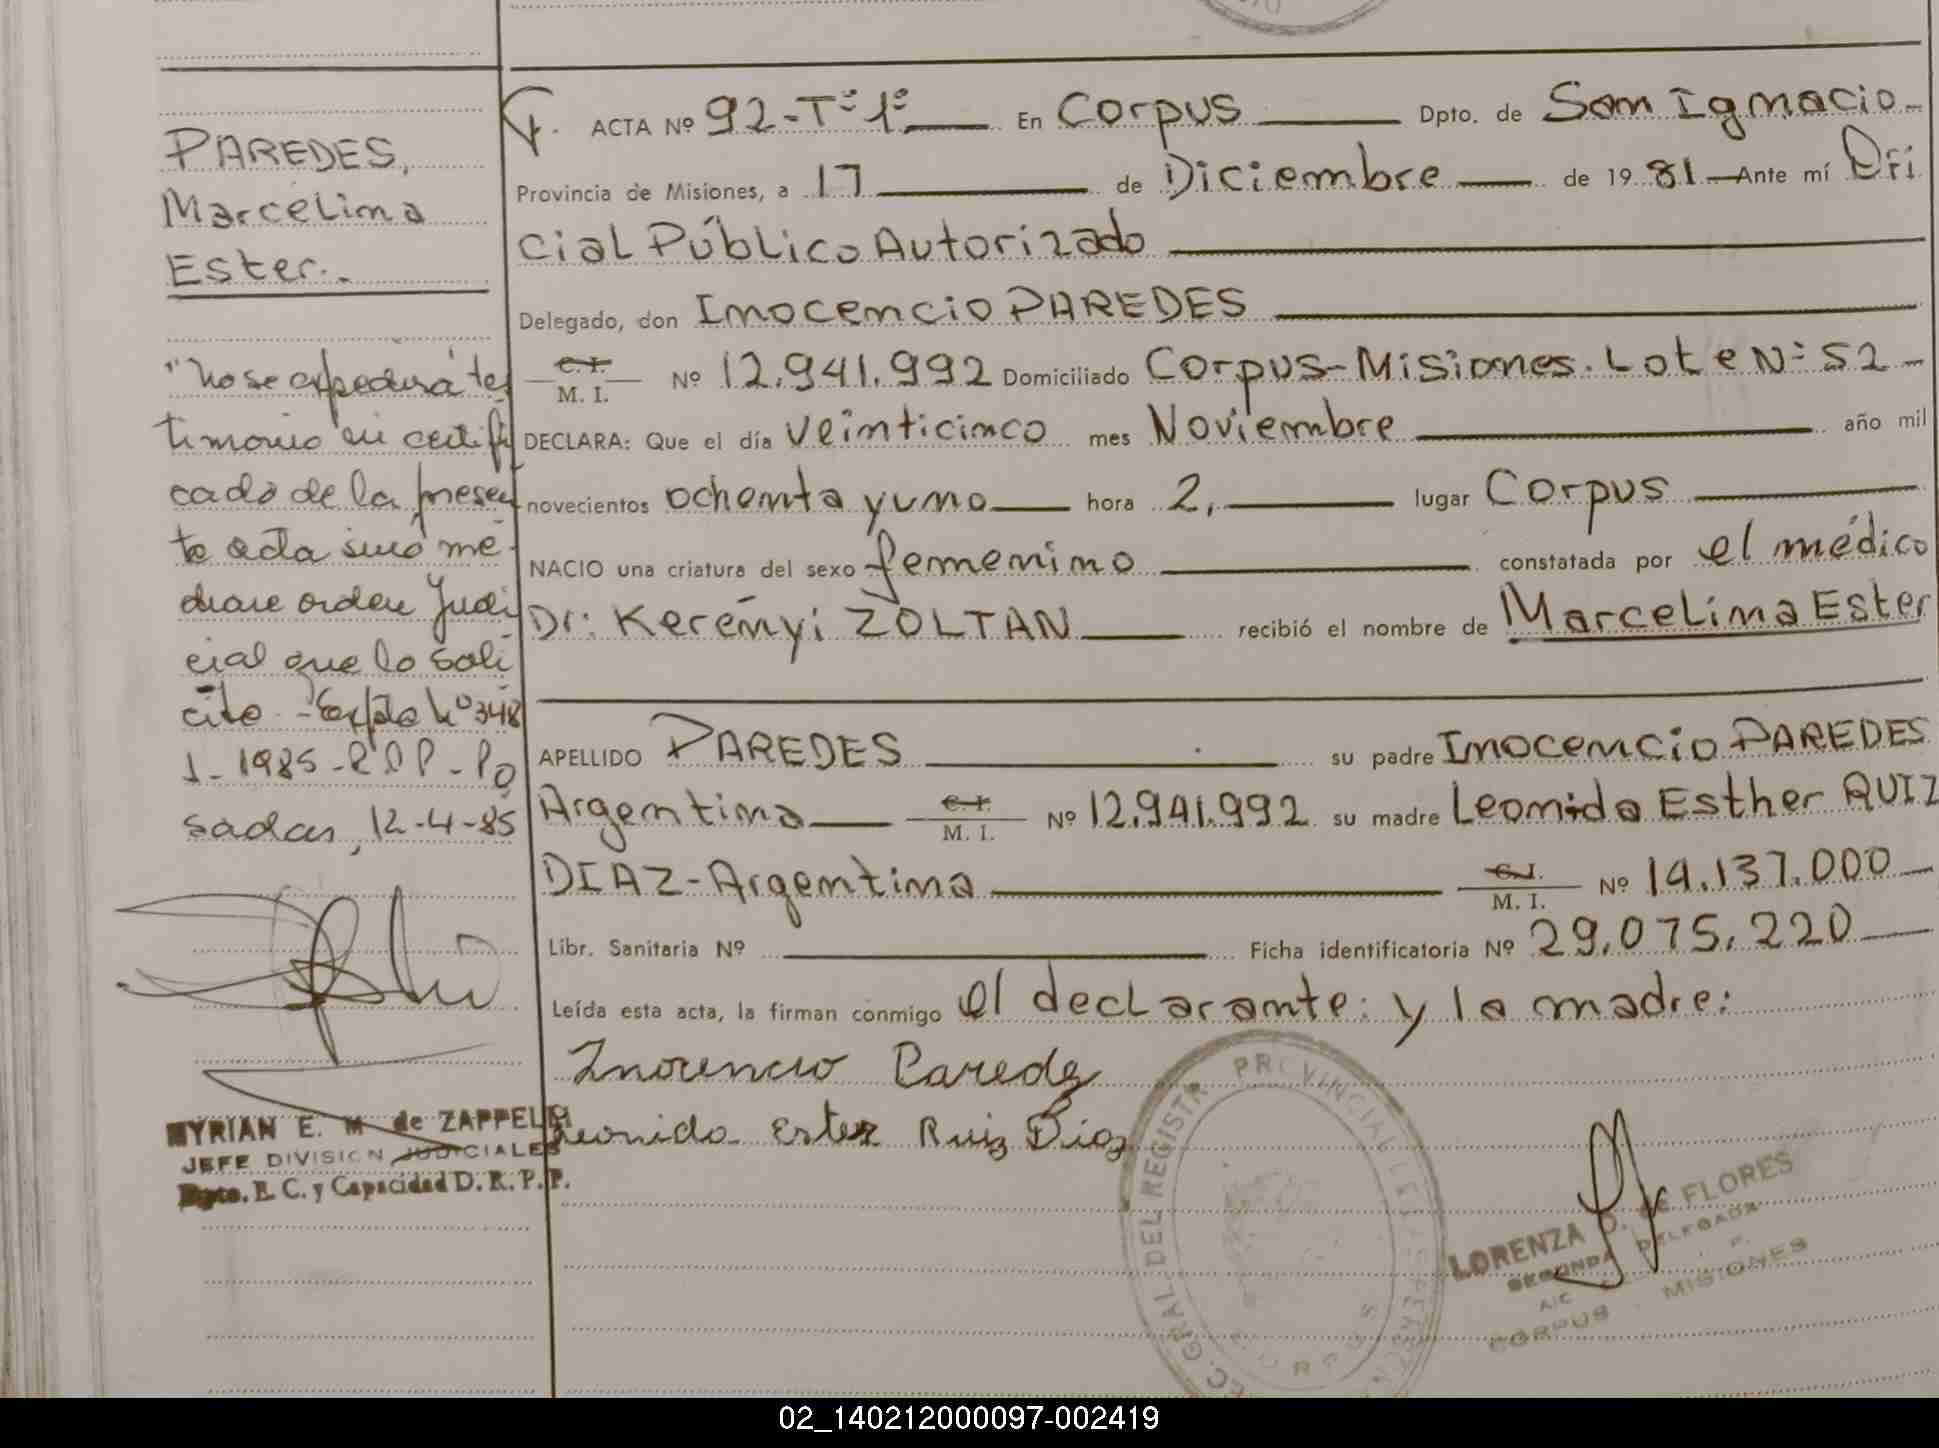 PAREDES,
Marcelina
Ester.-
"No se expedirá tes
timonio ni certifi
cado de la presen
te acta sino me-
diare orden Judi
cial que lo soli
cite.- Expte Nº 348
1-1985-R.P.P-Po
sadas, 12-4-85
MYRIAN E. M de ZAPPELLI
JEFE DIVISION JUDICIALES
Dpto. E. C. y Capacidad D. R. P. P.
F. ACTA Nº 92-Tº 1º En Corpus Dpto. de San Ignacio-
Provincia de Misiones, a 17 de Diciembre de 1981 Ante mí Ofi
cial Público Autorizado
Delegado, don Inocencio PAREDES
C. I. M. I. Nº 12.941.992 Domiciliado Corpus-Misiones. Lote Nº 52-
DECLARA: Que el día veinticinco mes Noviembre año mil
novecientos ochenta y uno hora 2, lugar Corpus
NACIO una criatura del sexo femenino constatada por el médico
Dr: Kerényi ZOLTAN recibió el nombre de Marcelina Ester
APELLIDO PAREDES su padre Inocencio PAREDES
Argentina C. I. M. I. Nº 12.941.992 su madre Leonida Esther RUIZ
DIAZ-Argentina C. I. M. I. Nº 14.137.000
Libr. Sanitaria Nº Ficha identificatoria Nº 29.075.220
Leída esta acta, la firman conmigo el declarante: y la madre:
Inocencio Paredes
Leonida Ester Ruiz Diaz
GRAL. DEL REGISTR PROVINCIAL
LORENZA D. de FLORES
SEGUNDA DELEGADA
A/C
CORPUS - MISIONES
02_140212000097-002419